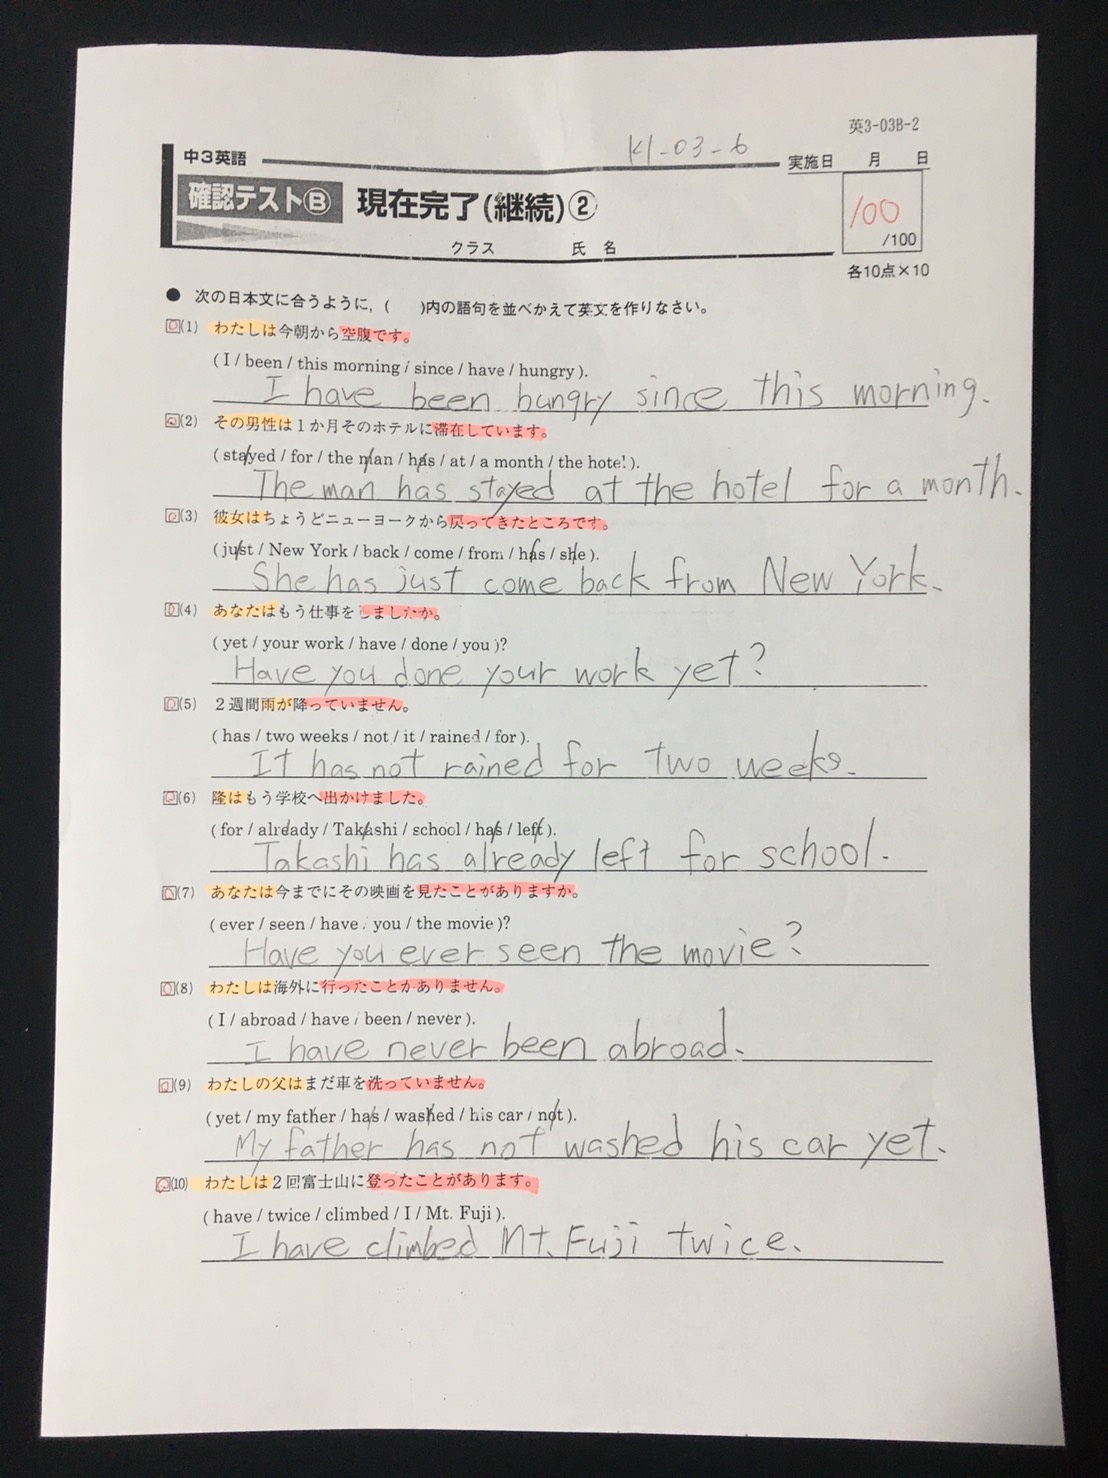 英3-03B-2
K1-03-6
中3英語
実施日 月 日
確認テストⒷ 現在完了(継続)②
100
/100
クラス 氏名
各10点×10
● 次の日本文に合うように, ( )内の語句を並べかえて英文を作りなさい。
(1) わたしは今朝から空腹です。
( I / been / this morning / since / have / hungry ).
I have been hungry since this morning.
(2) その男性は1か月そのホテルに滞在しています。
( stayed / for / the man / has / at / a month / the hotel ).
The man has stayed at the hotel for a month.
(3) 彼女はちょうどニューヨークから戻ってきたところです。
( just / New York / back / come / from / has / she ).
She has just come back from New York.
(4) あなたはもう仕事をしましたか。
( yet / your work / have / done / you )?
Have you done your work yet?
(5) 2週間雨が降っていません。
( has / two weeks / not / it / rained / for ).
It has not rained for two weeks.
(6) 隆はもう学校へ出かけました。
( for / already / Takashi / school / has / left ).
Takashi has already left for school.
(7) あなたは今までにその映画を見たことがありますか。
( ever / seen / have / you / the movie )?
Have you ever seen the movie?
(8) わたしは海外に行ったことがありません。
( I / abroad / have / been / never ).
I have never been abroad.
(9) わたしの父はまだ車を洗っていません。
( yet / my father / has / washed / his car / not ).
My father has not washed his car yet.
(10) わたしは2回富士山に登ったことがあります。
( have / twice / climbed / I / Mt. Fuji ).
I have climbed Mt. Fuji twice.